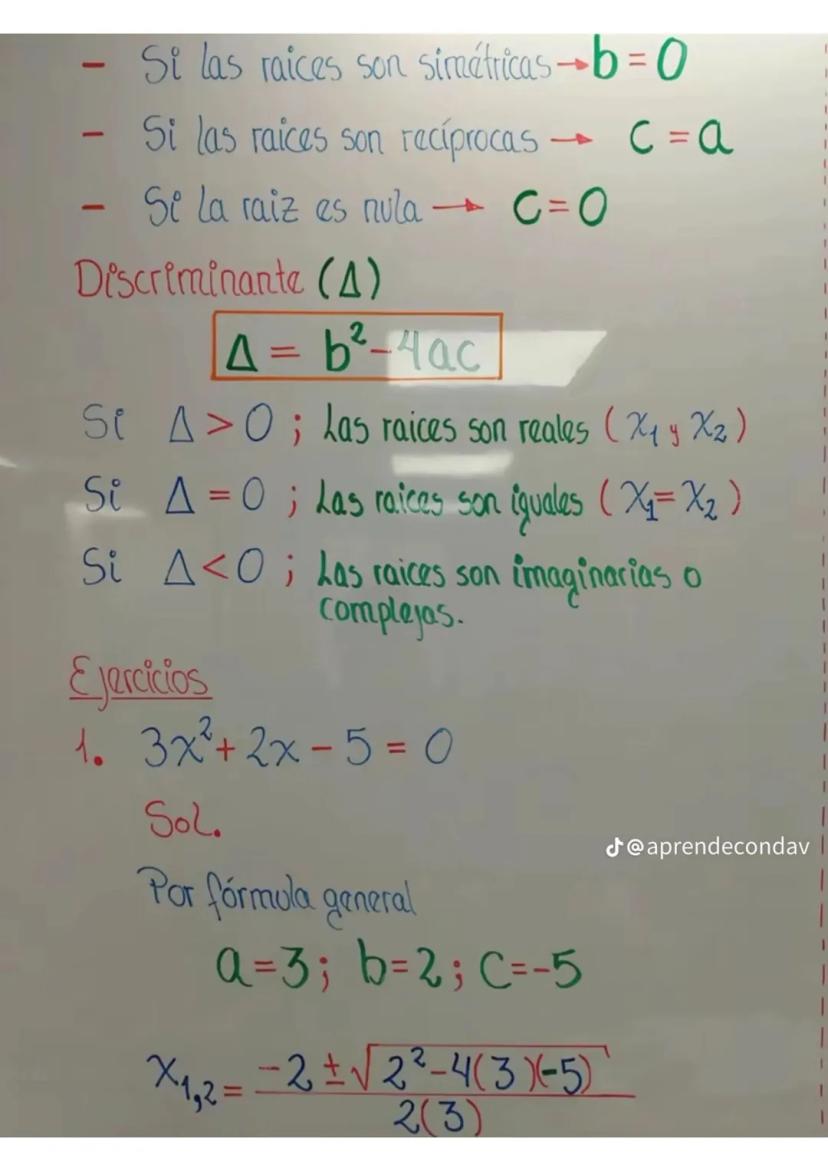 - Si las raices son simétricas → b = 0
- Si las raices son recíprocas → c = a
- Si la raiz es nula → c = 0
Discriminante (Δ)
Δ = b² - 4ac
Si Δ > 0 ; Las raices son reales (x₁ y x₂)
Si Δ = 0 ; Las raices son iguales (x₁ = x₂)
Si Δ < 0 ; Las raices son imaginarias o
complejas.
Ejercicios
1. 3x² + 2x - 5 = 0
Sol.
@aprendecondav
Por fórmula general
a = 3 ; b = 2 ; c = -5
x₁,₂ = (-2 ± √(2² - 4(3)(-5))) / 2(3)